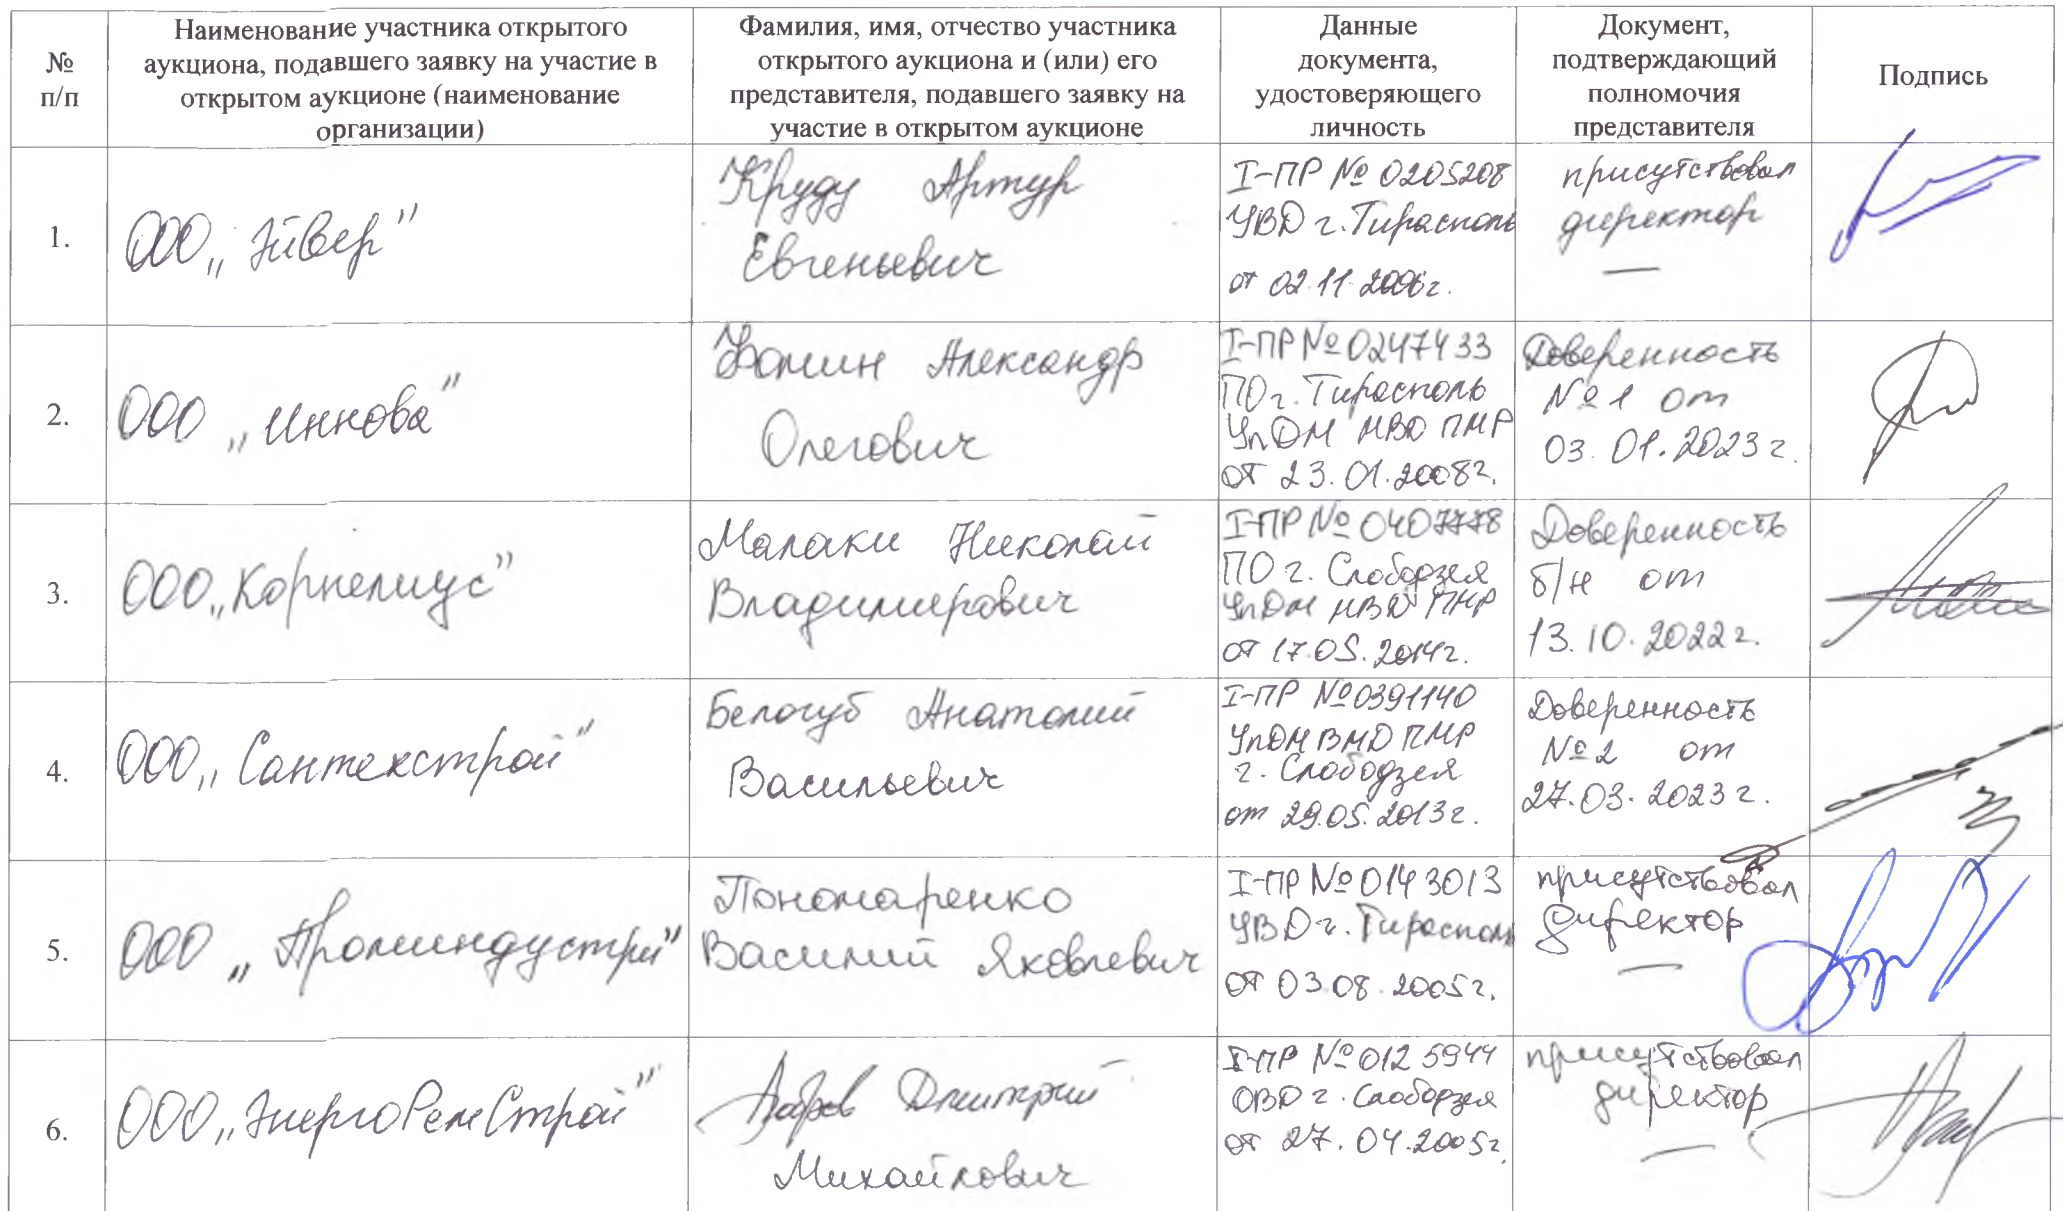 №
п/п
Наименование участника открытого
аукциона, подавшего заявку на участие в
открытом аукционе (наименование
организации)
Фамилия, имя, отчество участника
открытого аукциона и (или) его
представителя, подавшего заявку на
участие в открытом аукционе
Данные
документа,
удостоверяющего
личность
Документ,
подтверждающий
полномочия
представителя
Подпись
1.
ООО „Эйвер"
Круду Артур
Евгеньевич
I-ПР № 0205208
УВД г. Тирасполь
от 02.11.2006г.
присутствовал
директор
—
2.
ООО „Иннова"
Фомин Александр
Олегович
I-ПР № 0247433
ПО г. Тирасполь
УпДМ МВД ПМР
от 23.01.2008г.
Доверенность
№ 1 от
03.01.2023 г.
3.
ООО „Корнелиус"
Малаки Николай
Владимирович
I-ПР № 0407778
ПО г. Слободзея
УпДМ МВД ПМР
от 17.05.2014г.
Доверенность
б/н от
13.10.2022 г.
4.
ООО „Сантехстрой"
Белогуб Анатолий
Васильевич
I-ПР № 0391140
УпДМ ВМД ПМР
г. Слободзея
от 29.05.2013г.
Доверенность
№ 2 от
27.03.2023 г.
5.
ООО „Проминдустри"
Пономаренко
Василий Яковлевич
I-ПР № 0143013
УВД г. Тирасполь
от 03.08.2005 г.
присутствовал
директор
—
6.
ООО „ЭнергоРемСтрой"
Дмитрий
Михайлович
I-ПР № 0125944
ОВД г. Слободзея
от 27.04.2005г.
присутствовал
директор
—